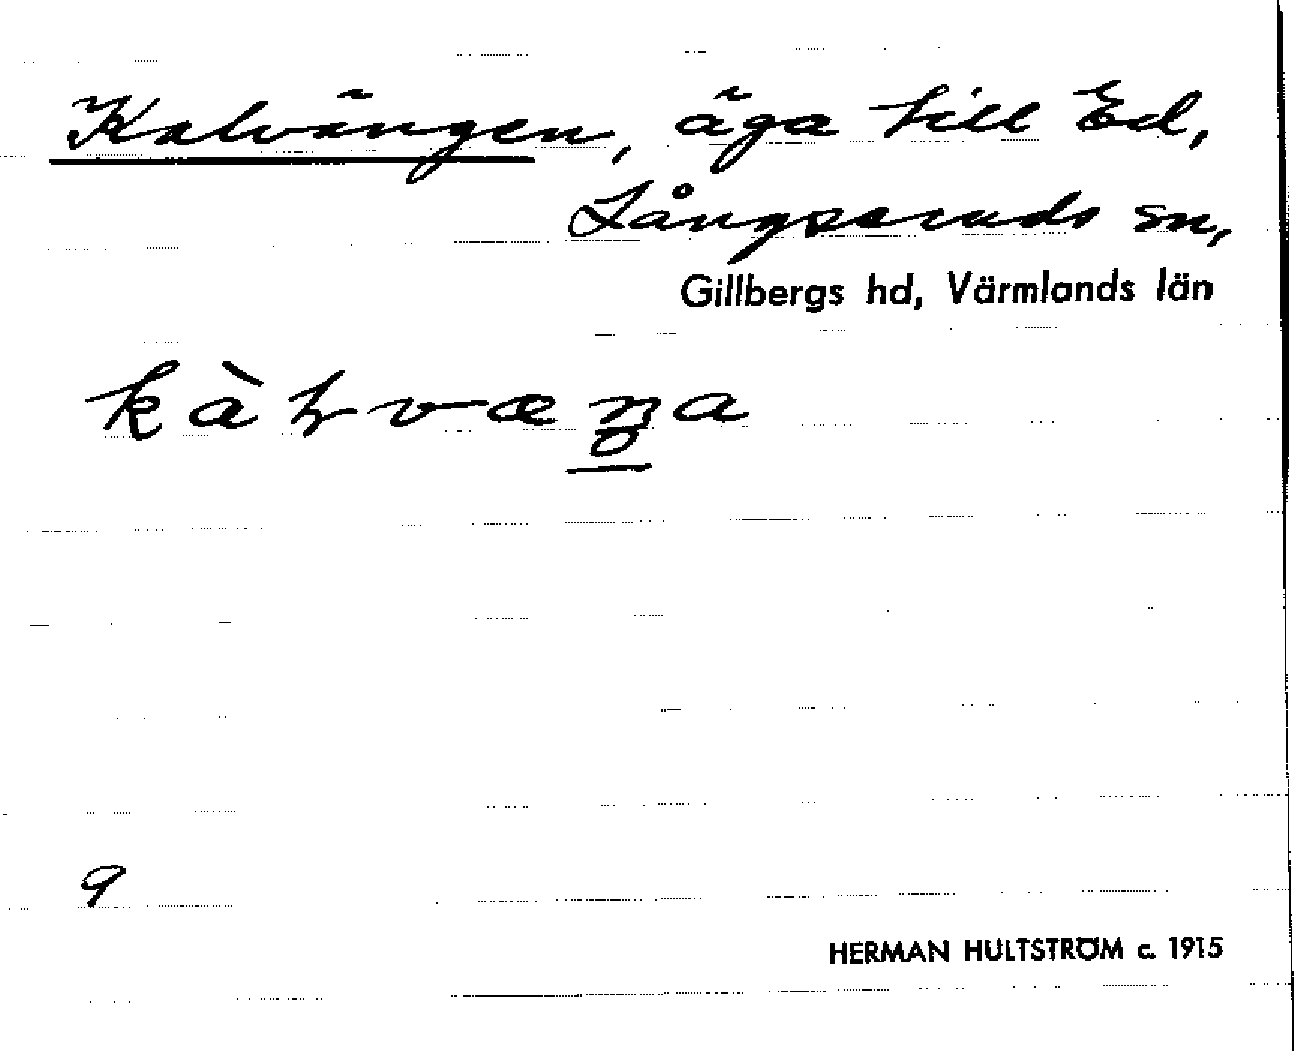 Kalvängen, äga till Ed,
Långseruds sn,
Gillbergs hd, Värmlands län
kàɫvæŋa
9
HERMAN HULTSTRÖM c. 1915